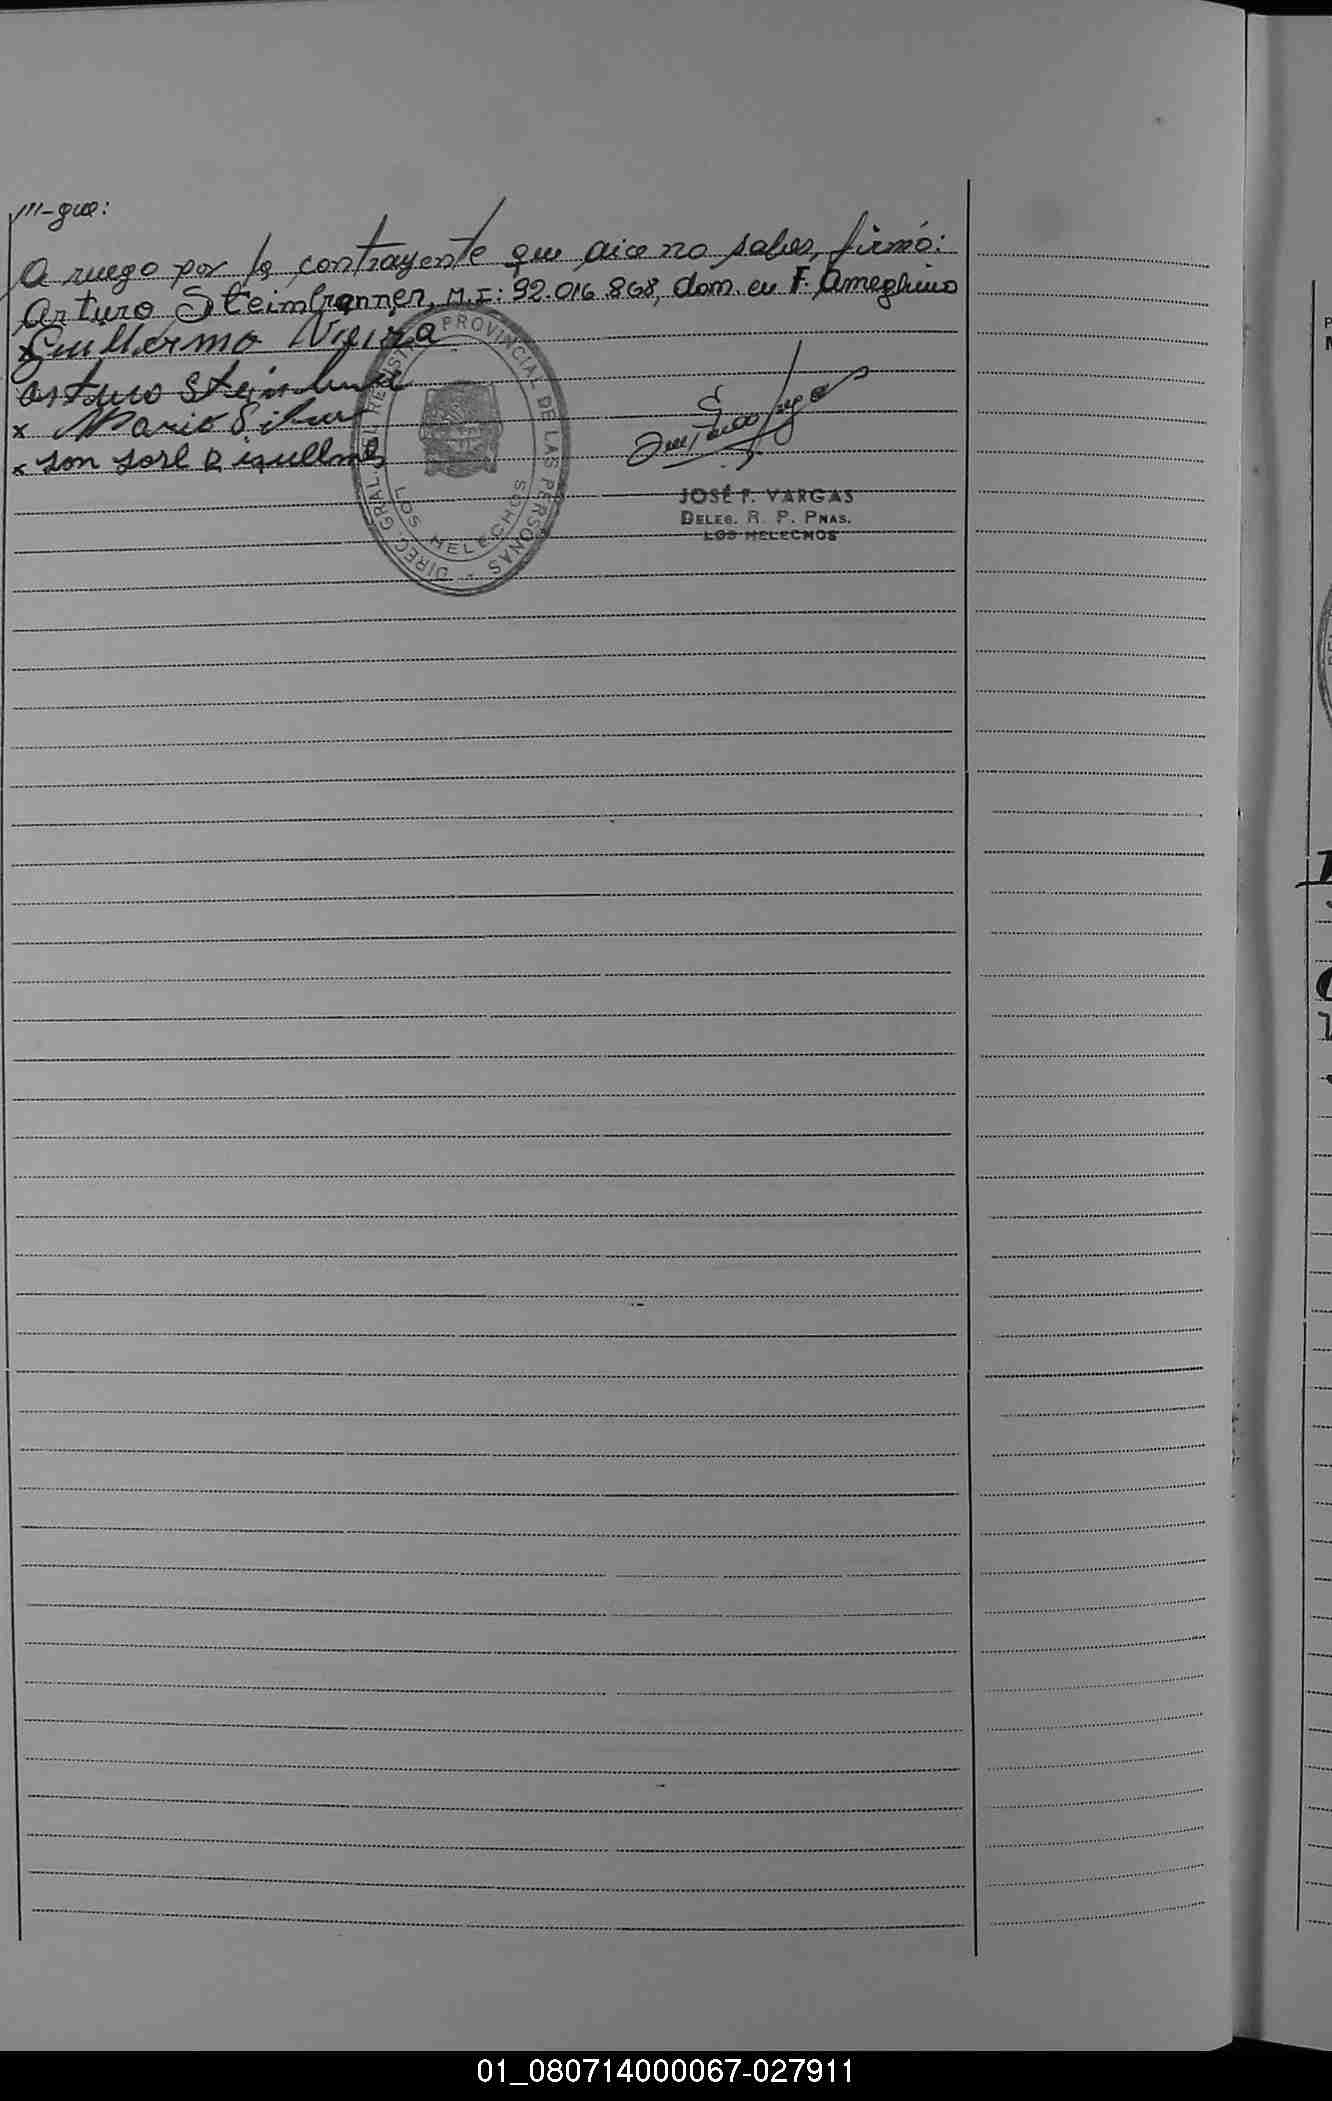 ///-gue:
A ruego por la contrayente que dice no saber, firmó:
Arturo Steimbranner, M.I: 92.016.868, dom. en F. Ameghino
x Guillermo Vieira
Arturo
x Mario Silva
x Ramon José Riquelme
DIREC. GRAL. DEL REGISTRO PROVINCIAL DE LAS PERSONAS
LOS HELECHOS
JOSÉ F. VARGAS
DELEG. R. P. PNAS.
LOS HELECHOS
01_080714000067-027911